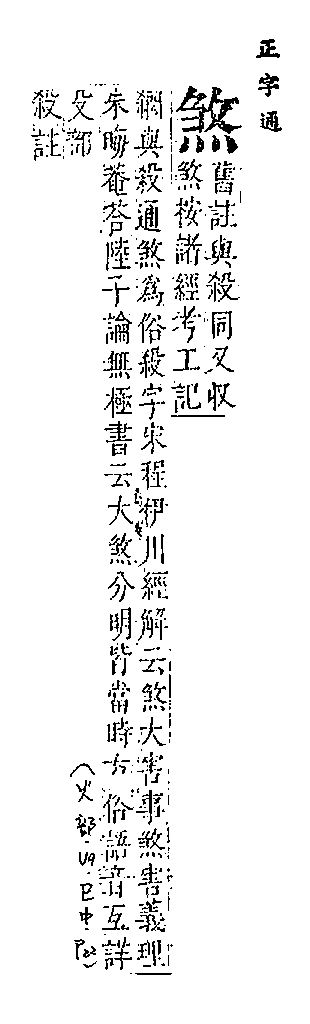 正字通
煞
舊註與殺同又収
煞按諸經考工記
綱與殺通煞為俗殺字宋程伊川經解云煞大害事煞害義理
朱晦菴荅陸子論無極書云大煞分明皆當時方俗語音互詳
殳部
殺註